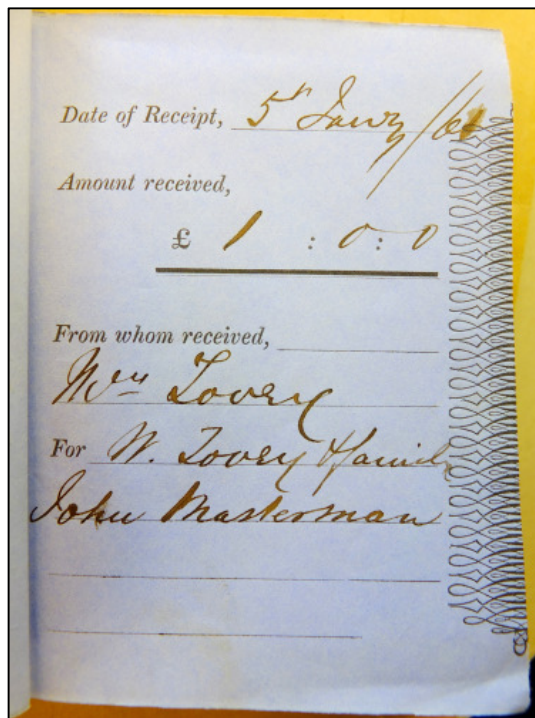 Date of Receipt, 5th Jany /61
Amount received,
£ 1 : 0 : 0
From whom received,
Mrs Tovey
For W. Tovey
John Masterman